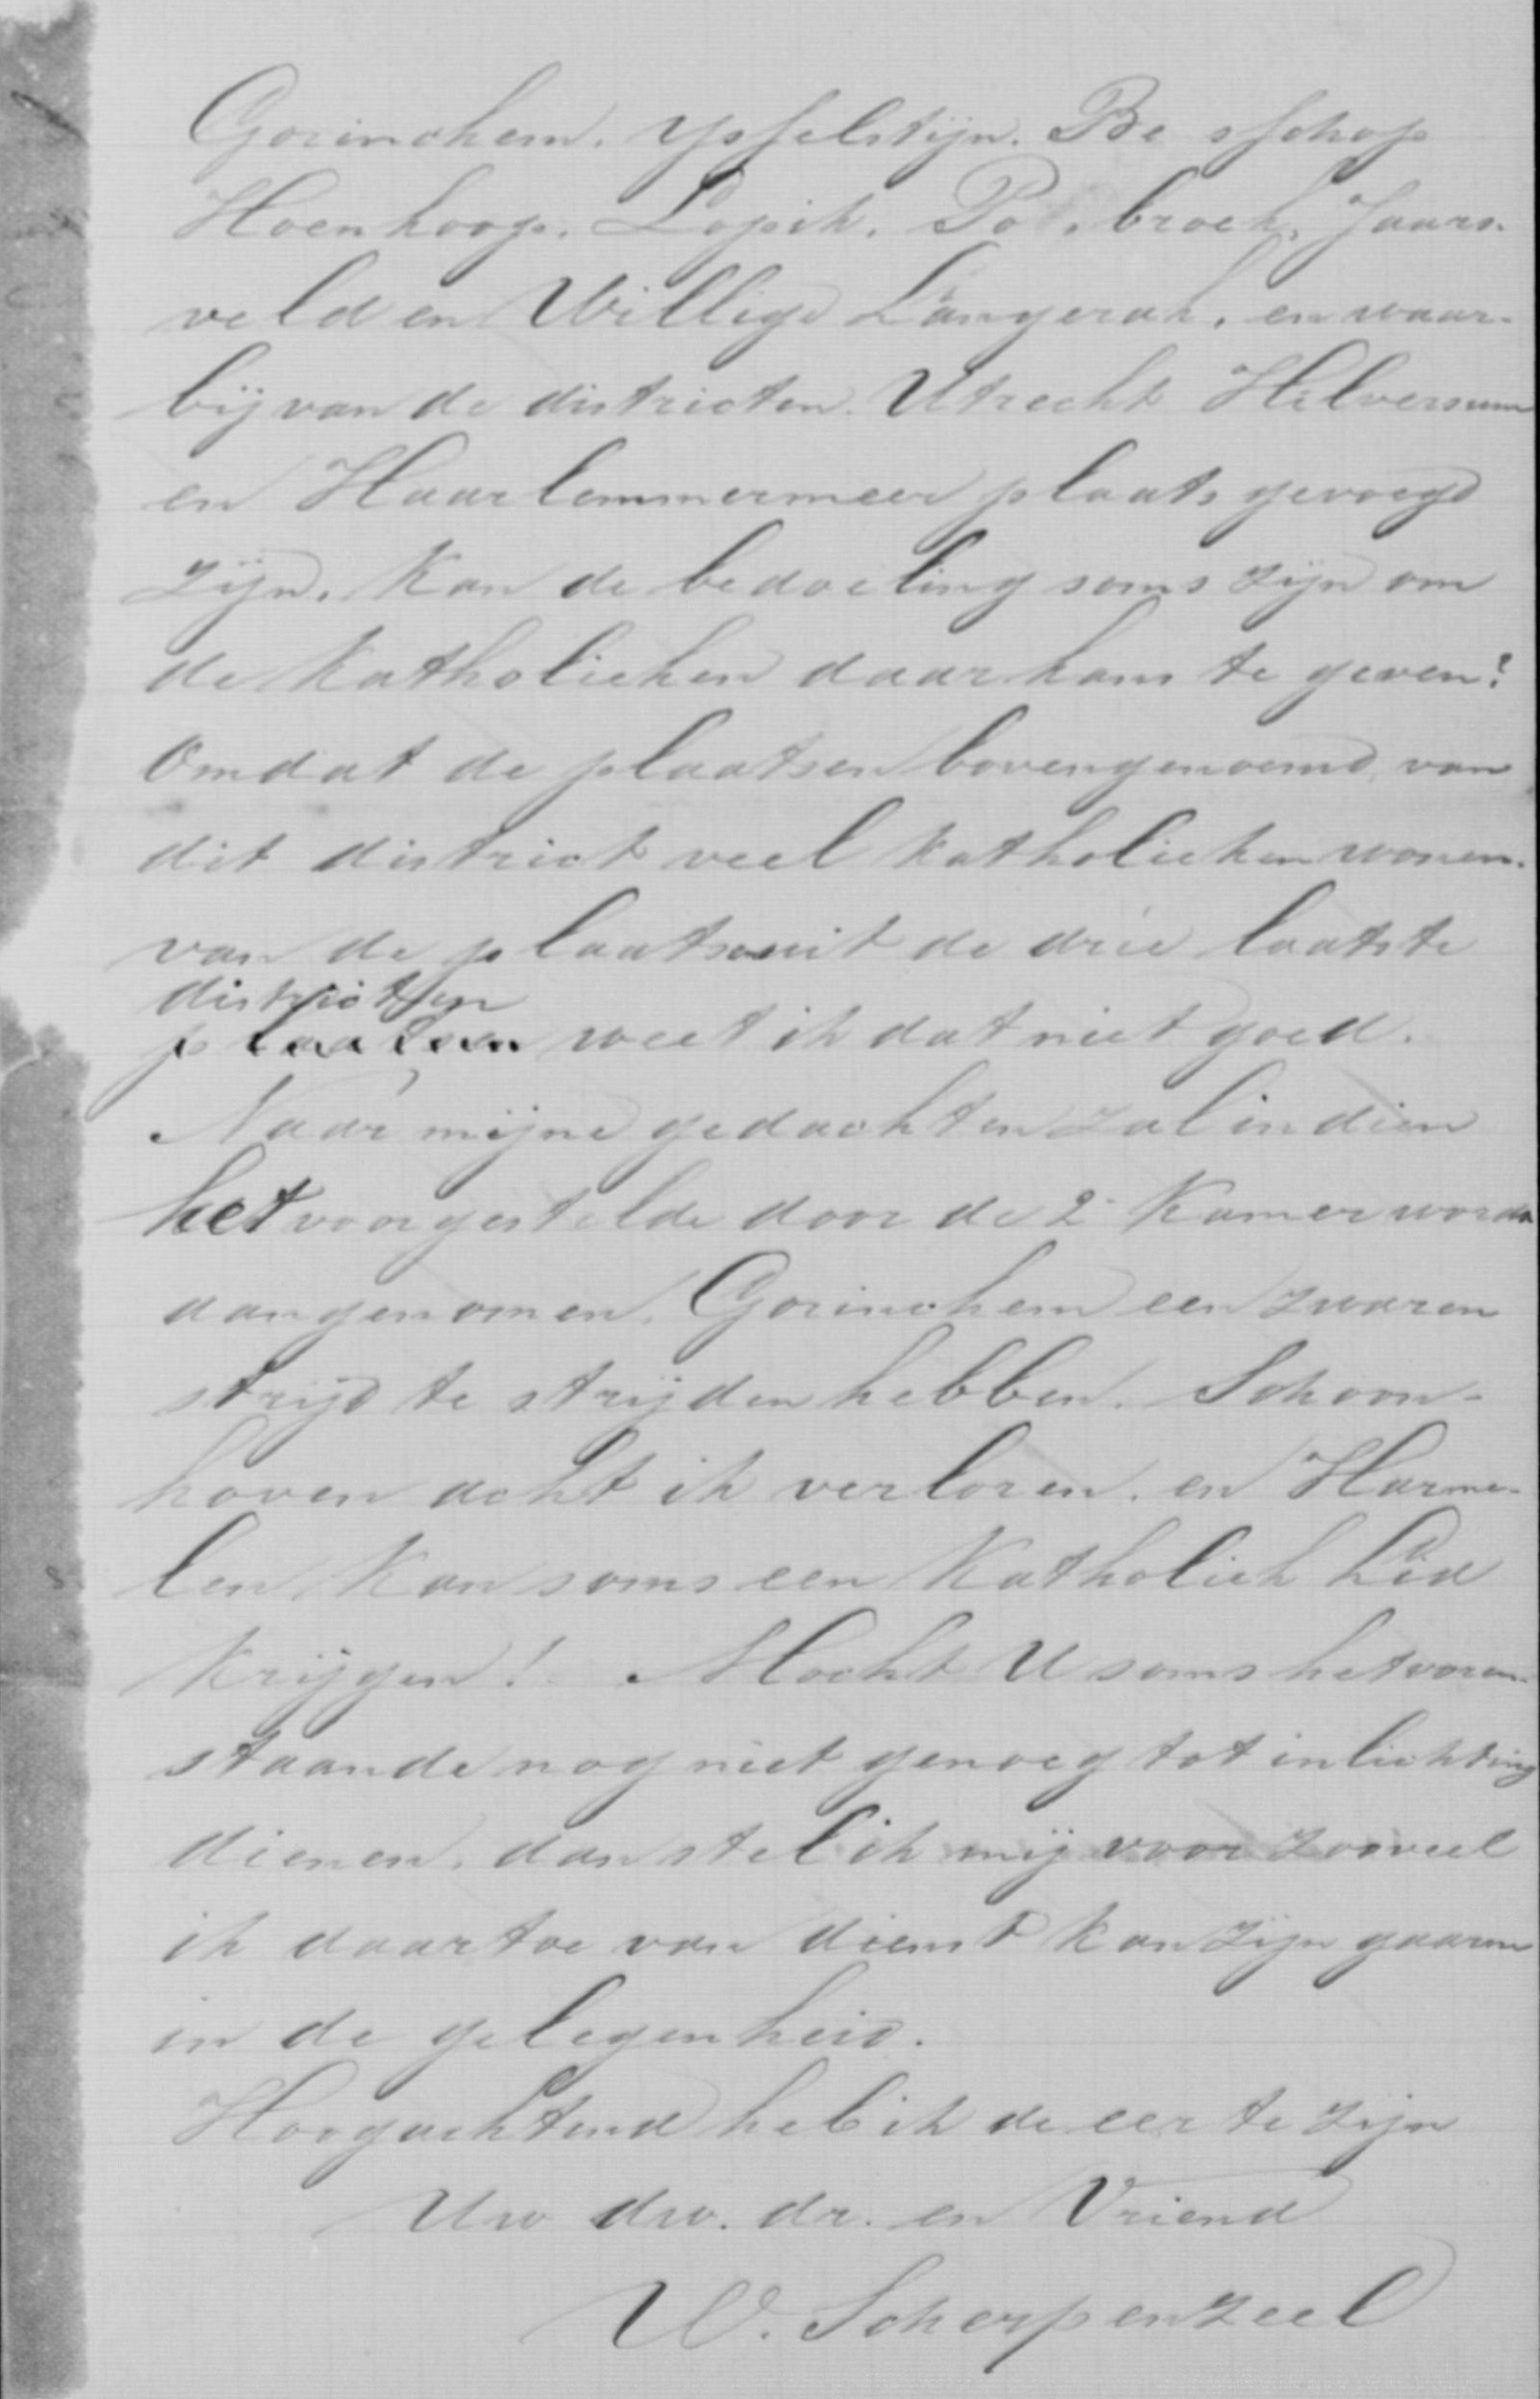 Gorinchem. Ysselstijn. Be sschop
Hoenkoop. Lopik. Pols broek. Jaars-
veld en Willige Langerak. en waar-
bij van de districten Utrecht Hilversum
en Haarlemmermeer plaats gevoegd
zijn. Kan de bedoeling soms zijn om
de Katholieken daar kans te geven?
Omdat de plaatsen bovengenoemd van
dit district veel Katholieken wonen.
van de plaatsen uit de drie laatste
districten
plaatsen weet ik dat niet goed.
Naar mijne gedachten zal indien
het voorgestelde door de 2e Kamer worde
aangenomen. Gorinchem een zwaren
strijd te strijden hebben. Schoon-
hoven acht ik verloren. en Harme-
len Kan soms een Katholiek Lid
Krijgen! Mocht U soms het voren-
staande nog niet genoeg tot inlichting
dienen. dan stel ik mij voor zooveel
ik daartoe van dienst kan zijn gaarne
in de gelegenheid.
Hoogachtend heb ik de eer te zijn
Uw dw. dr. en Vriend
W. Scherpenzeel